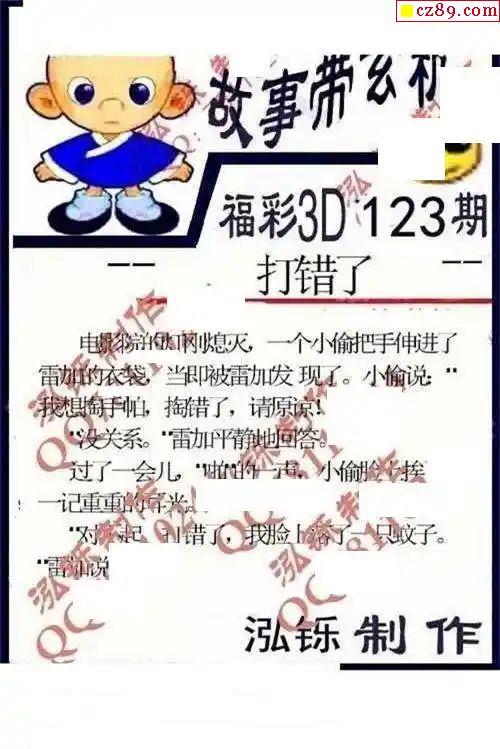 cz89.com
故事带玄机
福彩3D 123期
打错了
电影院的灯刚熄灭，一个小偷把手伸进了
雷加的衣袋，当即被雷加发 现了。小偷说："
我想掏手帕，掏错了，请原谅！
"没关系。"雷加平静地回答。
过了一会儿，"啪"的一声，小偷脸上挨
一记重重的耳光。
"对不起 打错了，我脸上落了一只蚊子。
"雷加说
泓铄制作